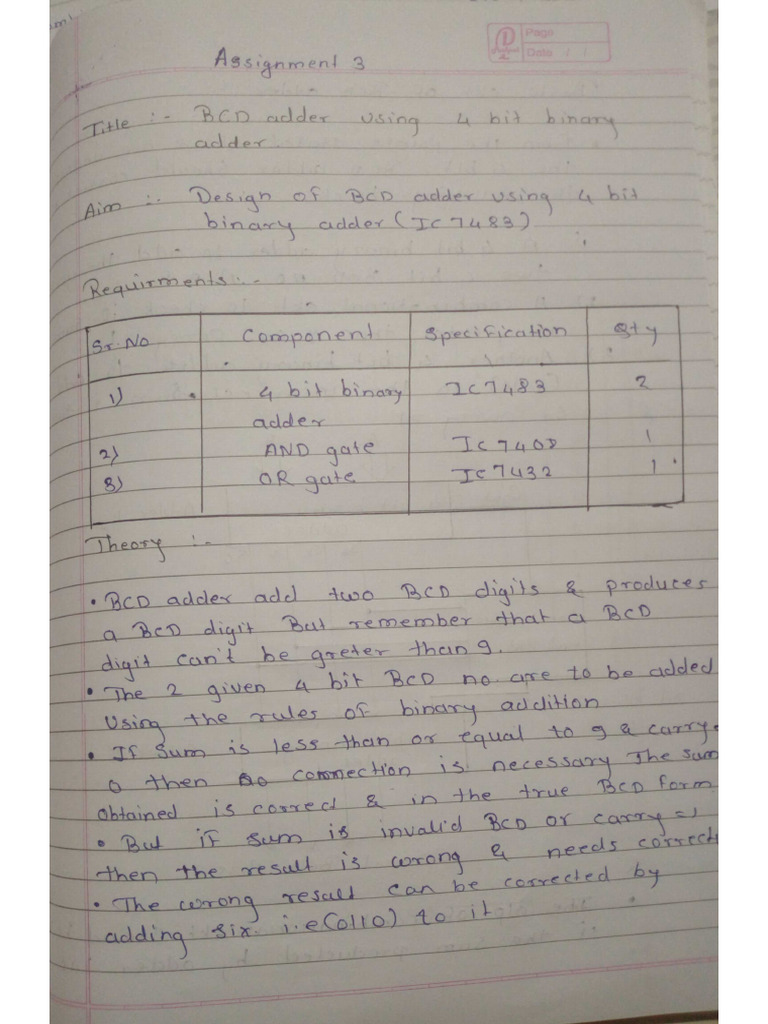 Page
Date / /
Assignment 3
Title :- BCD adder using 4 bit binary
adder.
Aim :- Design of BCD adder using 4 bit
binary adder (IC 7483)
Requirments :-
Sr.No Component Specification Qty
1) 4 bit binary IC7483 2
adder
2) AND gate IC 7408 1
3) OR gate IC 7432 1
Theory :-
• BCD adder add two BCD digits & produces
a BCD digit But remember that a BCD
digit can't be greter than 9.
• The 2 given 4 bit BCD no are to be added
using the rules of binary addition
• If sum is less than or equal to 9 & carry
0 then no connection is necessary The sum
obtained is correcd & in the true BCD form
• But if sum is invalid BCD or carry =1
then the result is wrong & needs correct
• The wrong result can be corrected by
adding six i.e (0110) to it